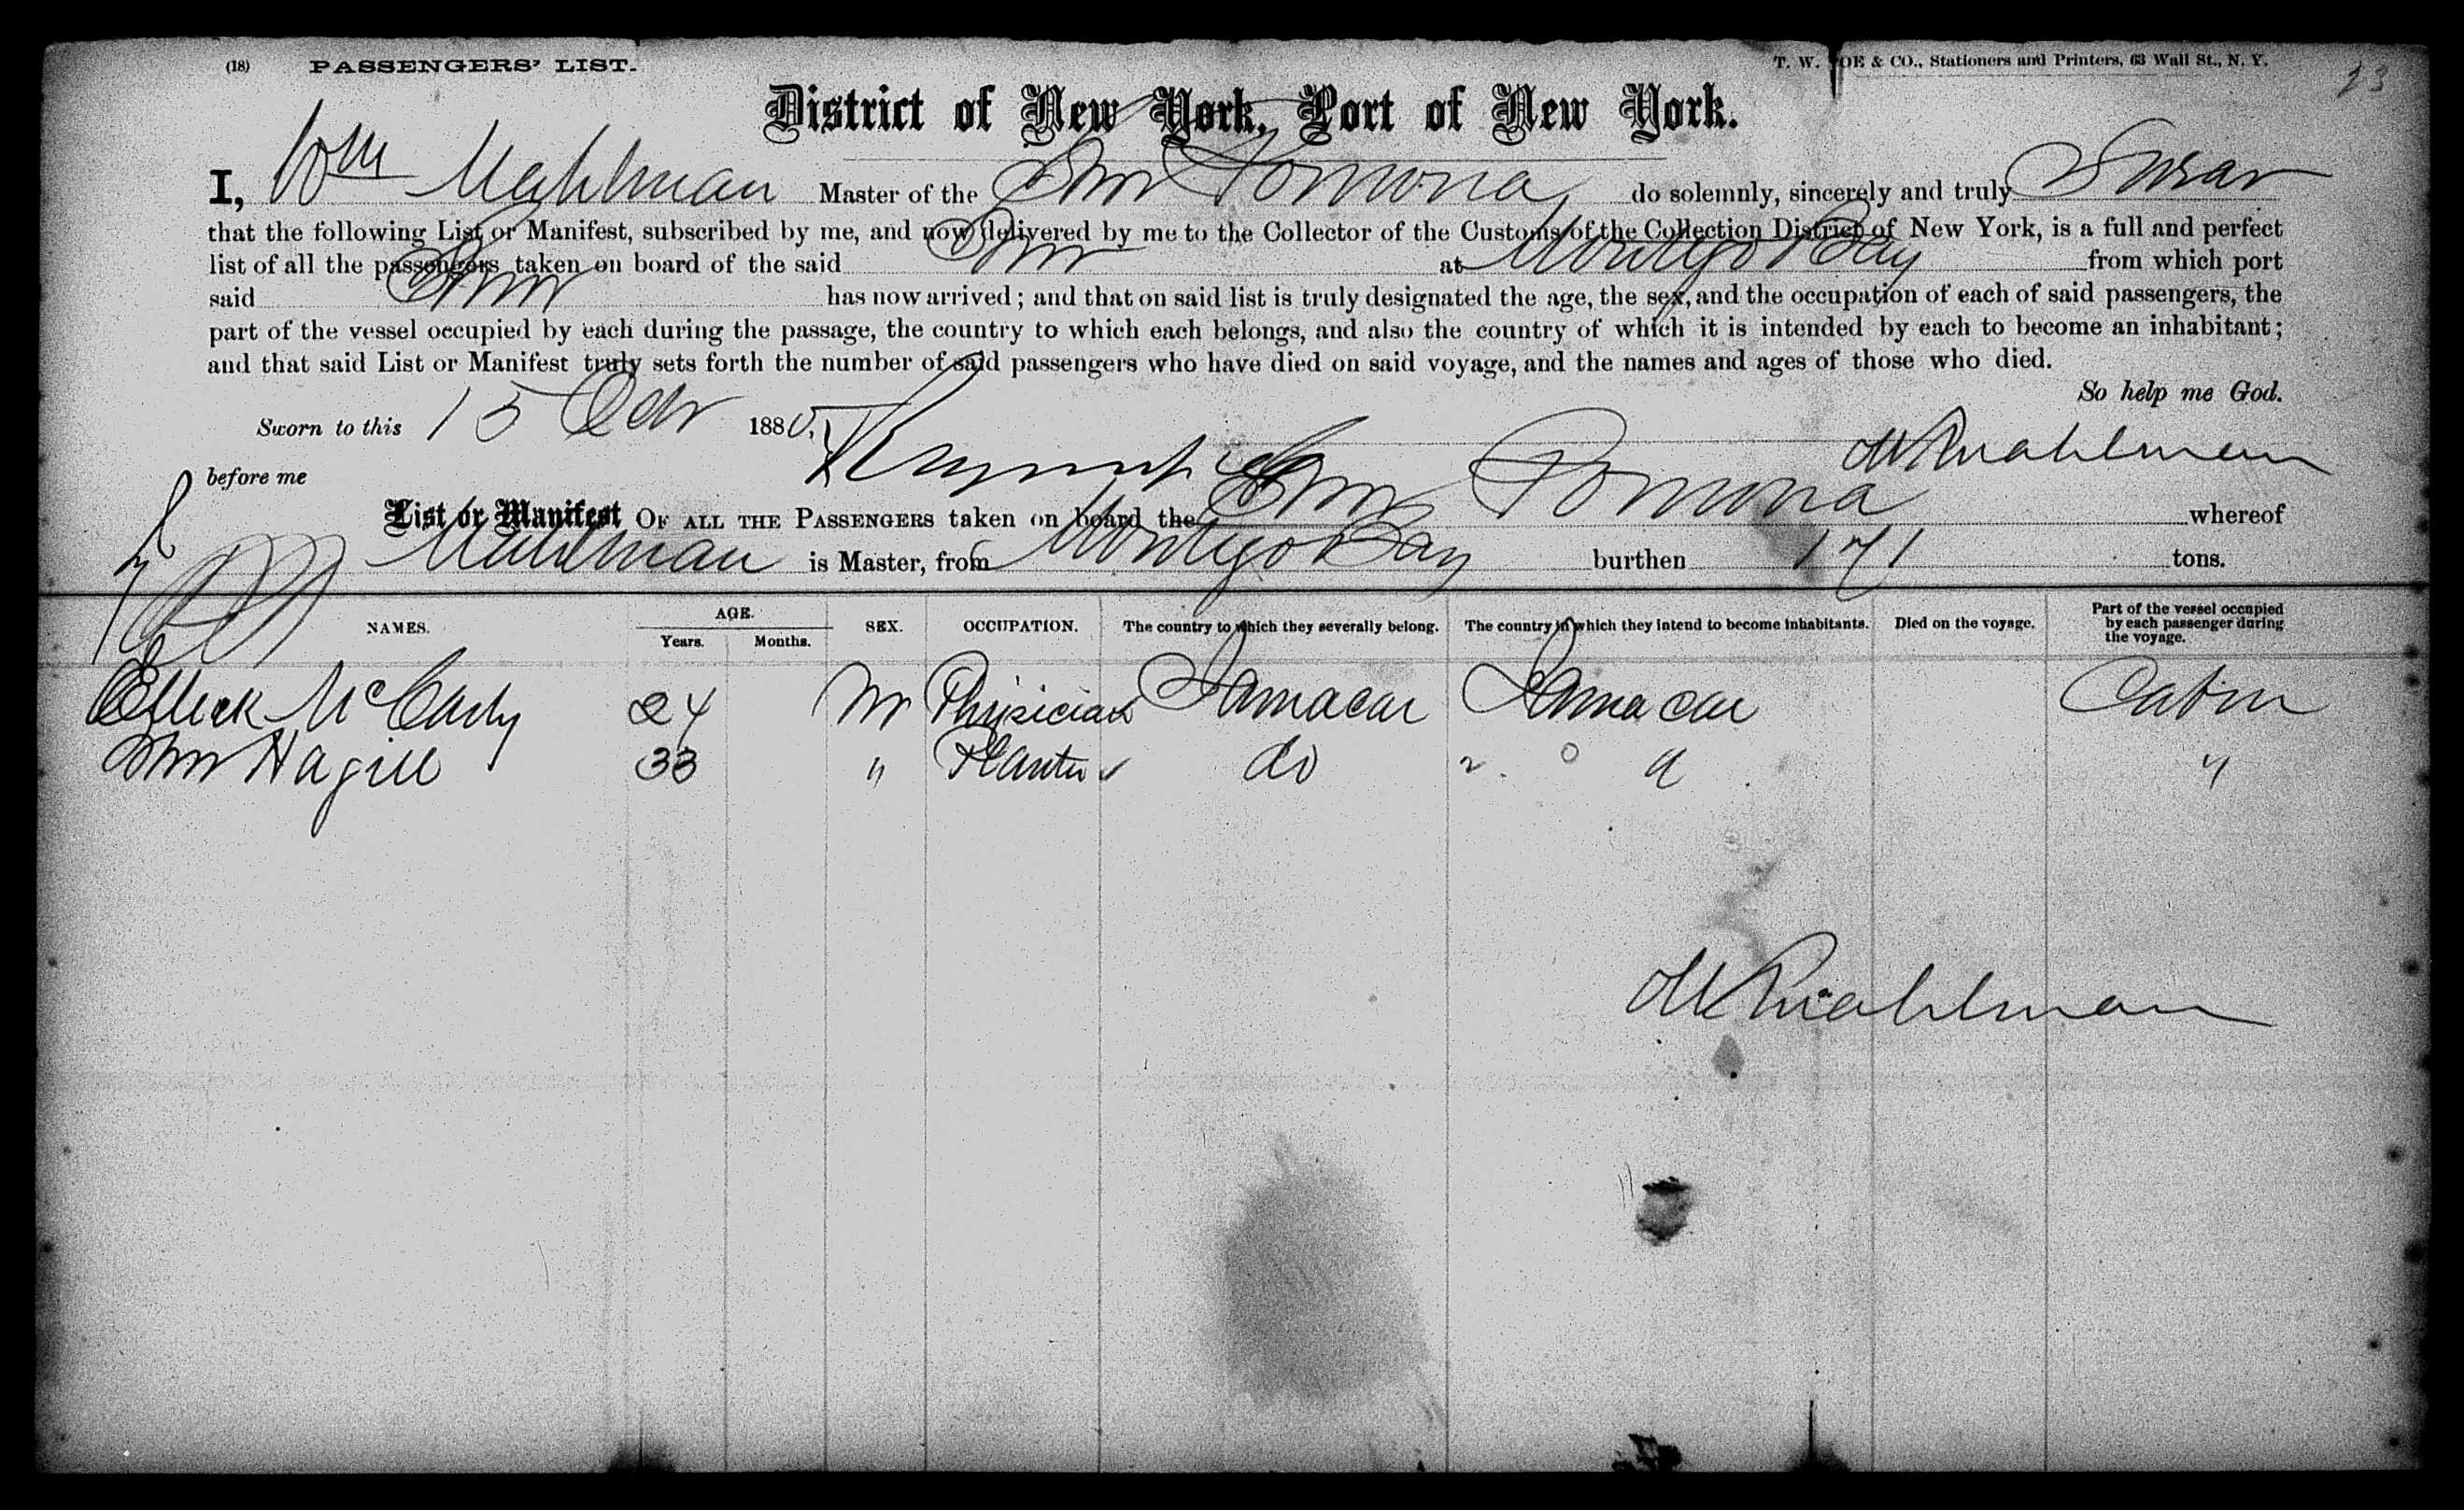 (18) PASSENGERS' LIST. T. W. & CO., Stationers and Printers, 63 Wall St., N. Y. 23
District of New York, Port of New York.
I, Wm Mahlman Master of the Smr Pomona do solemnly, sincerely and truly Swear
that the following List or Manifest, subscribed by me, and now delivered by me to the Collector of the Customs of the Collection District of New York, is a full and perfect
list of all the passengers taken on board of the said Smr at Montego Bay from which port
said Smr has now arrived; and that on said list is truly designated the age, the sex, and the occupation of each of said passengers, the
part of the vessel occupied by each during the passage, the country to which each belongs, and also the country of which it is intended by each to become an inhabitant;
and that said List or Manifest truly sets forth the number of said passengers who have died on said voyage, and the names and ages of those who died.
So help me God.
Sworn to this 15 188
before me Mahlman
List or Manifest OF ALL THE PASSENGERS taken on board the Smr Pomona whereof
Mahlman is Master, from Montego Bay burthen 171 tons.
NAMES. AGE. Years. Months. SEX. OCCUPATION. The country to which they severally belong. The country in which they intend to become inhabitants. Died on the voyage. Part of the vessel occupied by each passenger during the voyage.
McCarty 24 m Physician Jamacai Jamacai Cabin
Hagill 33 " Planter do " "
Mahlman